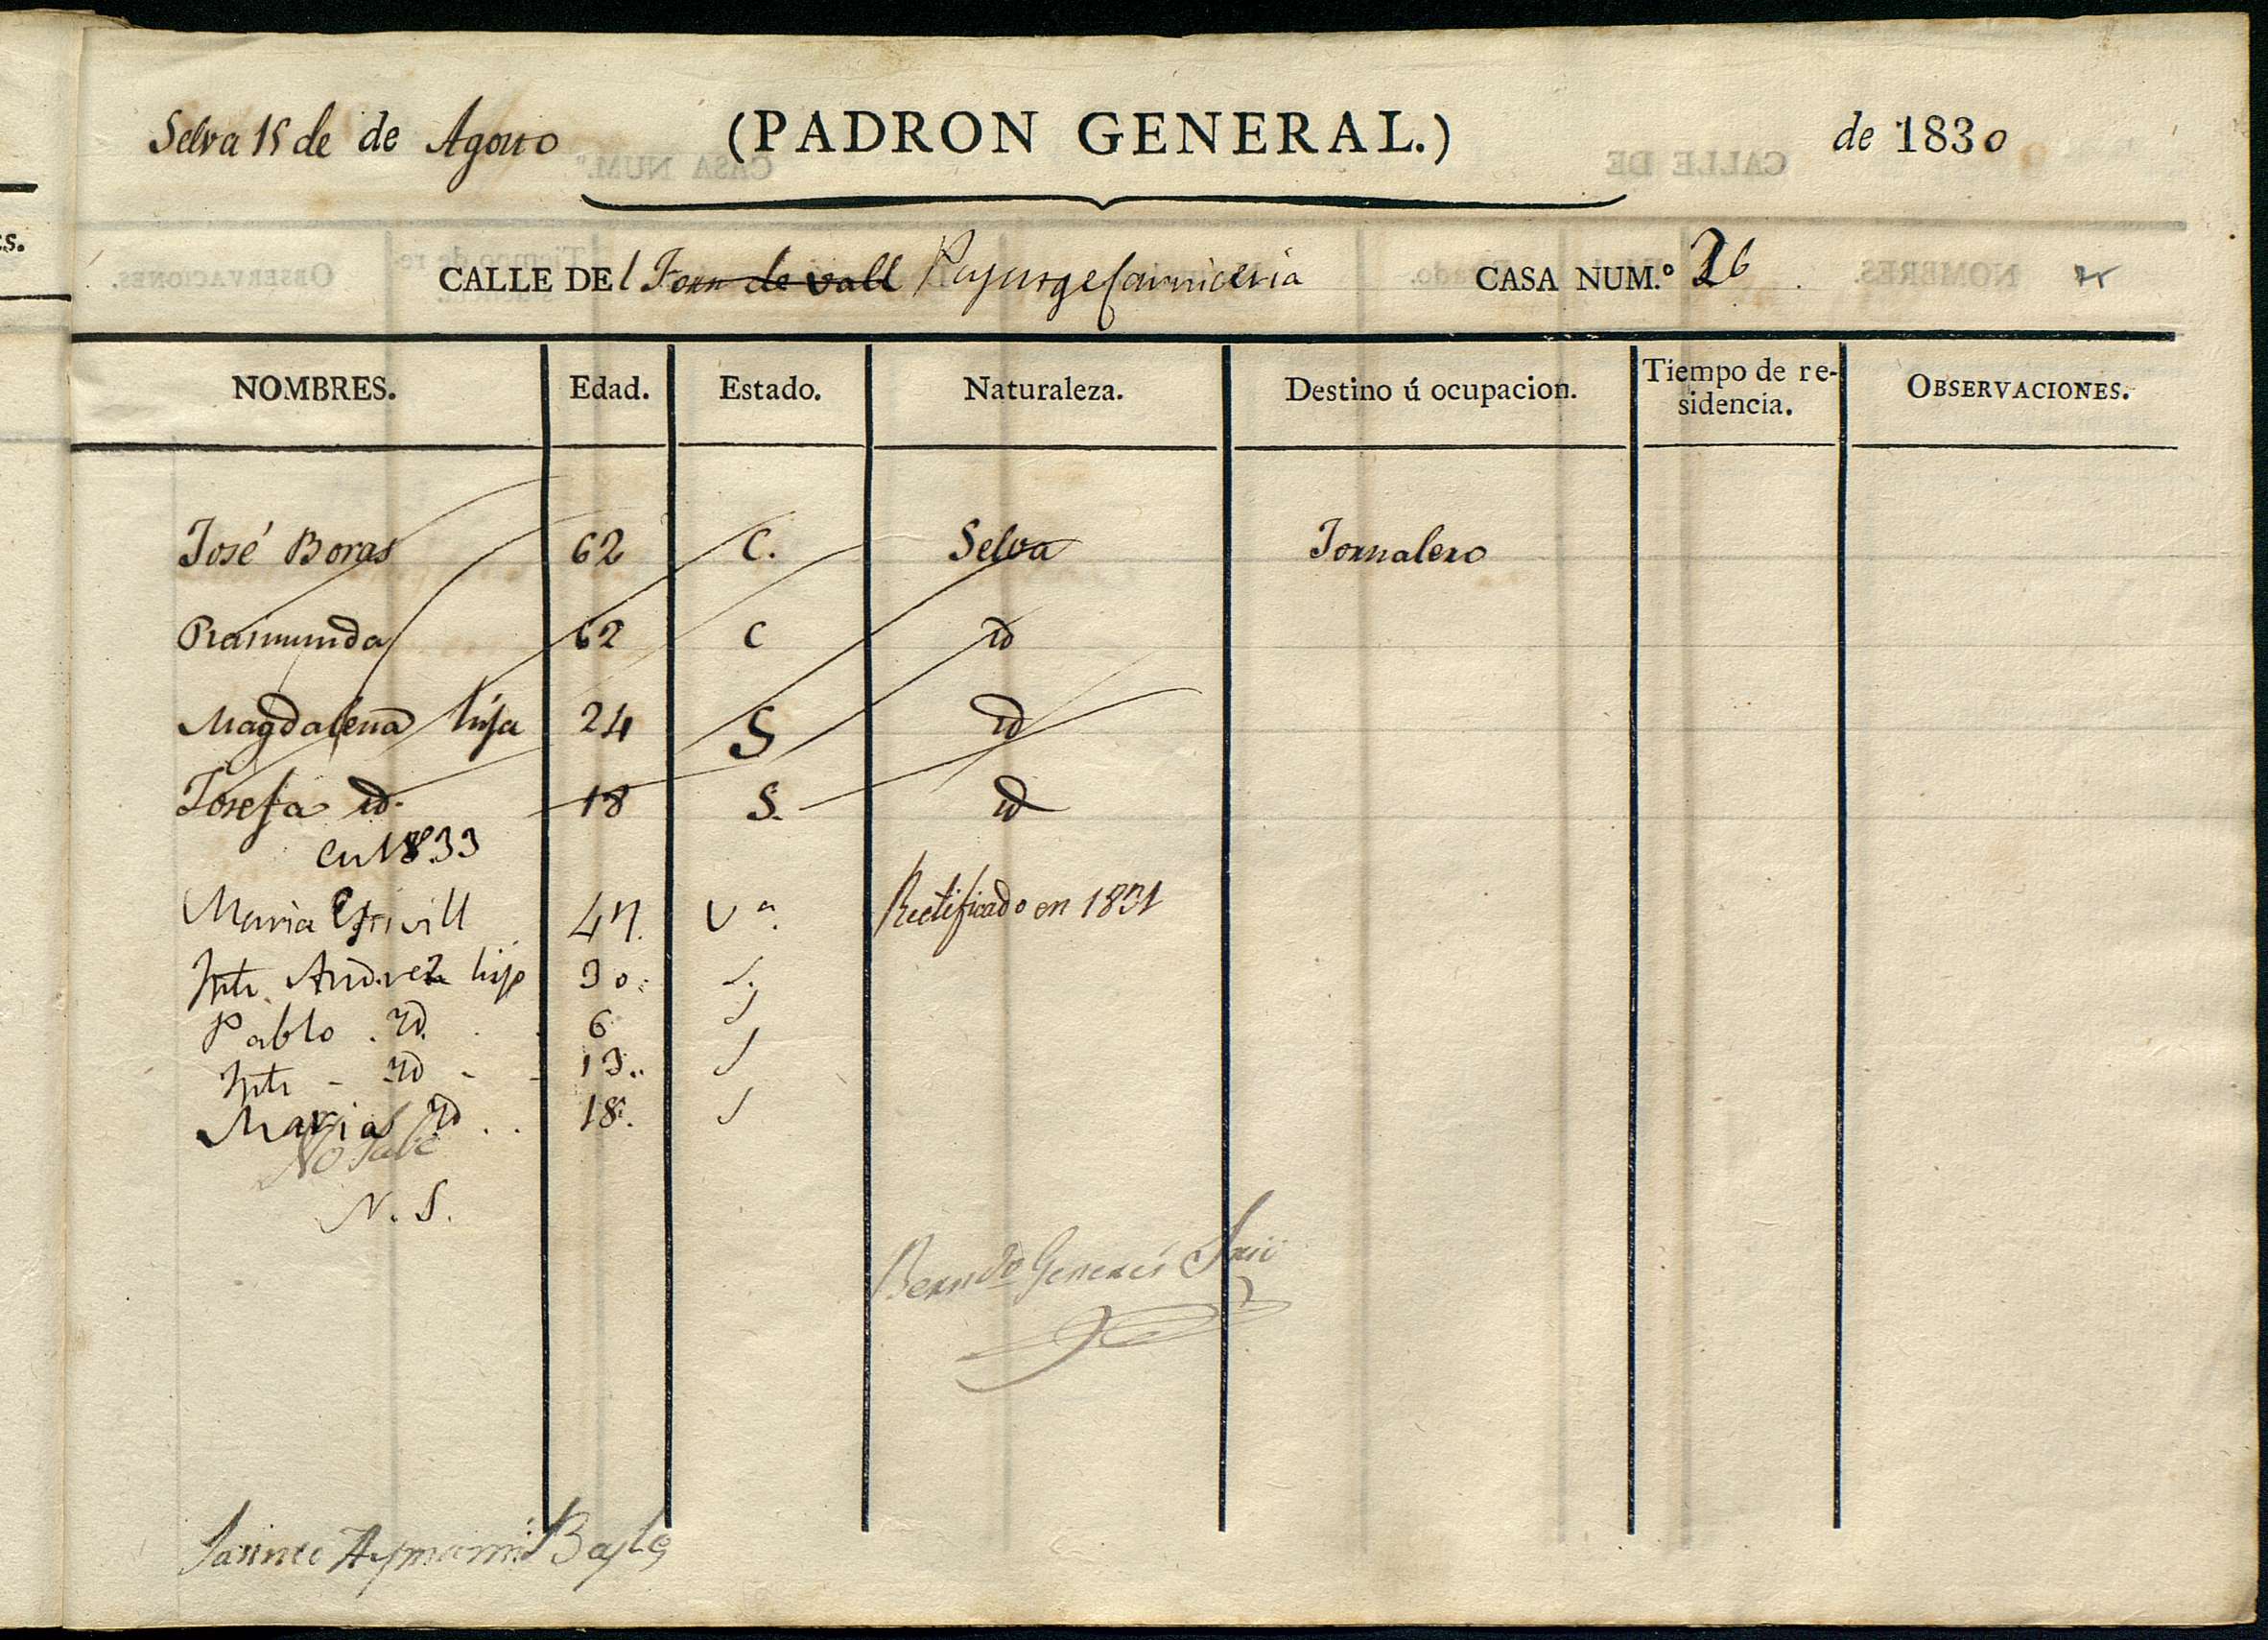 Selva 15 de de Agosto (PADRON GENERAL.) de 1830
CALLE DEl Forn de vall Carniceria CASA NUM.º 26
NOMBRES. Edad. Estado. Naturaleza. Destino ú ocupacion. Tiempo de re-sidencia. OBSERVACIONES.
José Boras 62 C. Selva Jornalero
Raimunda 62 C id
Magdalena hija 24 S id
Josefa id. 18 S. id
en 1833
Maria 47. Va. Rectificado en 1831
Andres hijo 30
Pablo . Id. 6 S
Id 13.. S
Maria Id . . 18. S
No Sabe
N. S.
Berndo Srio
Jaime Aymami Bayle